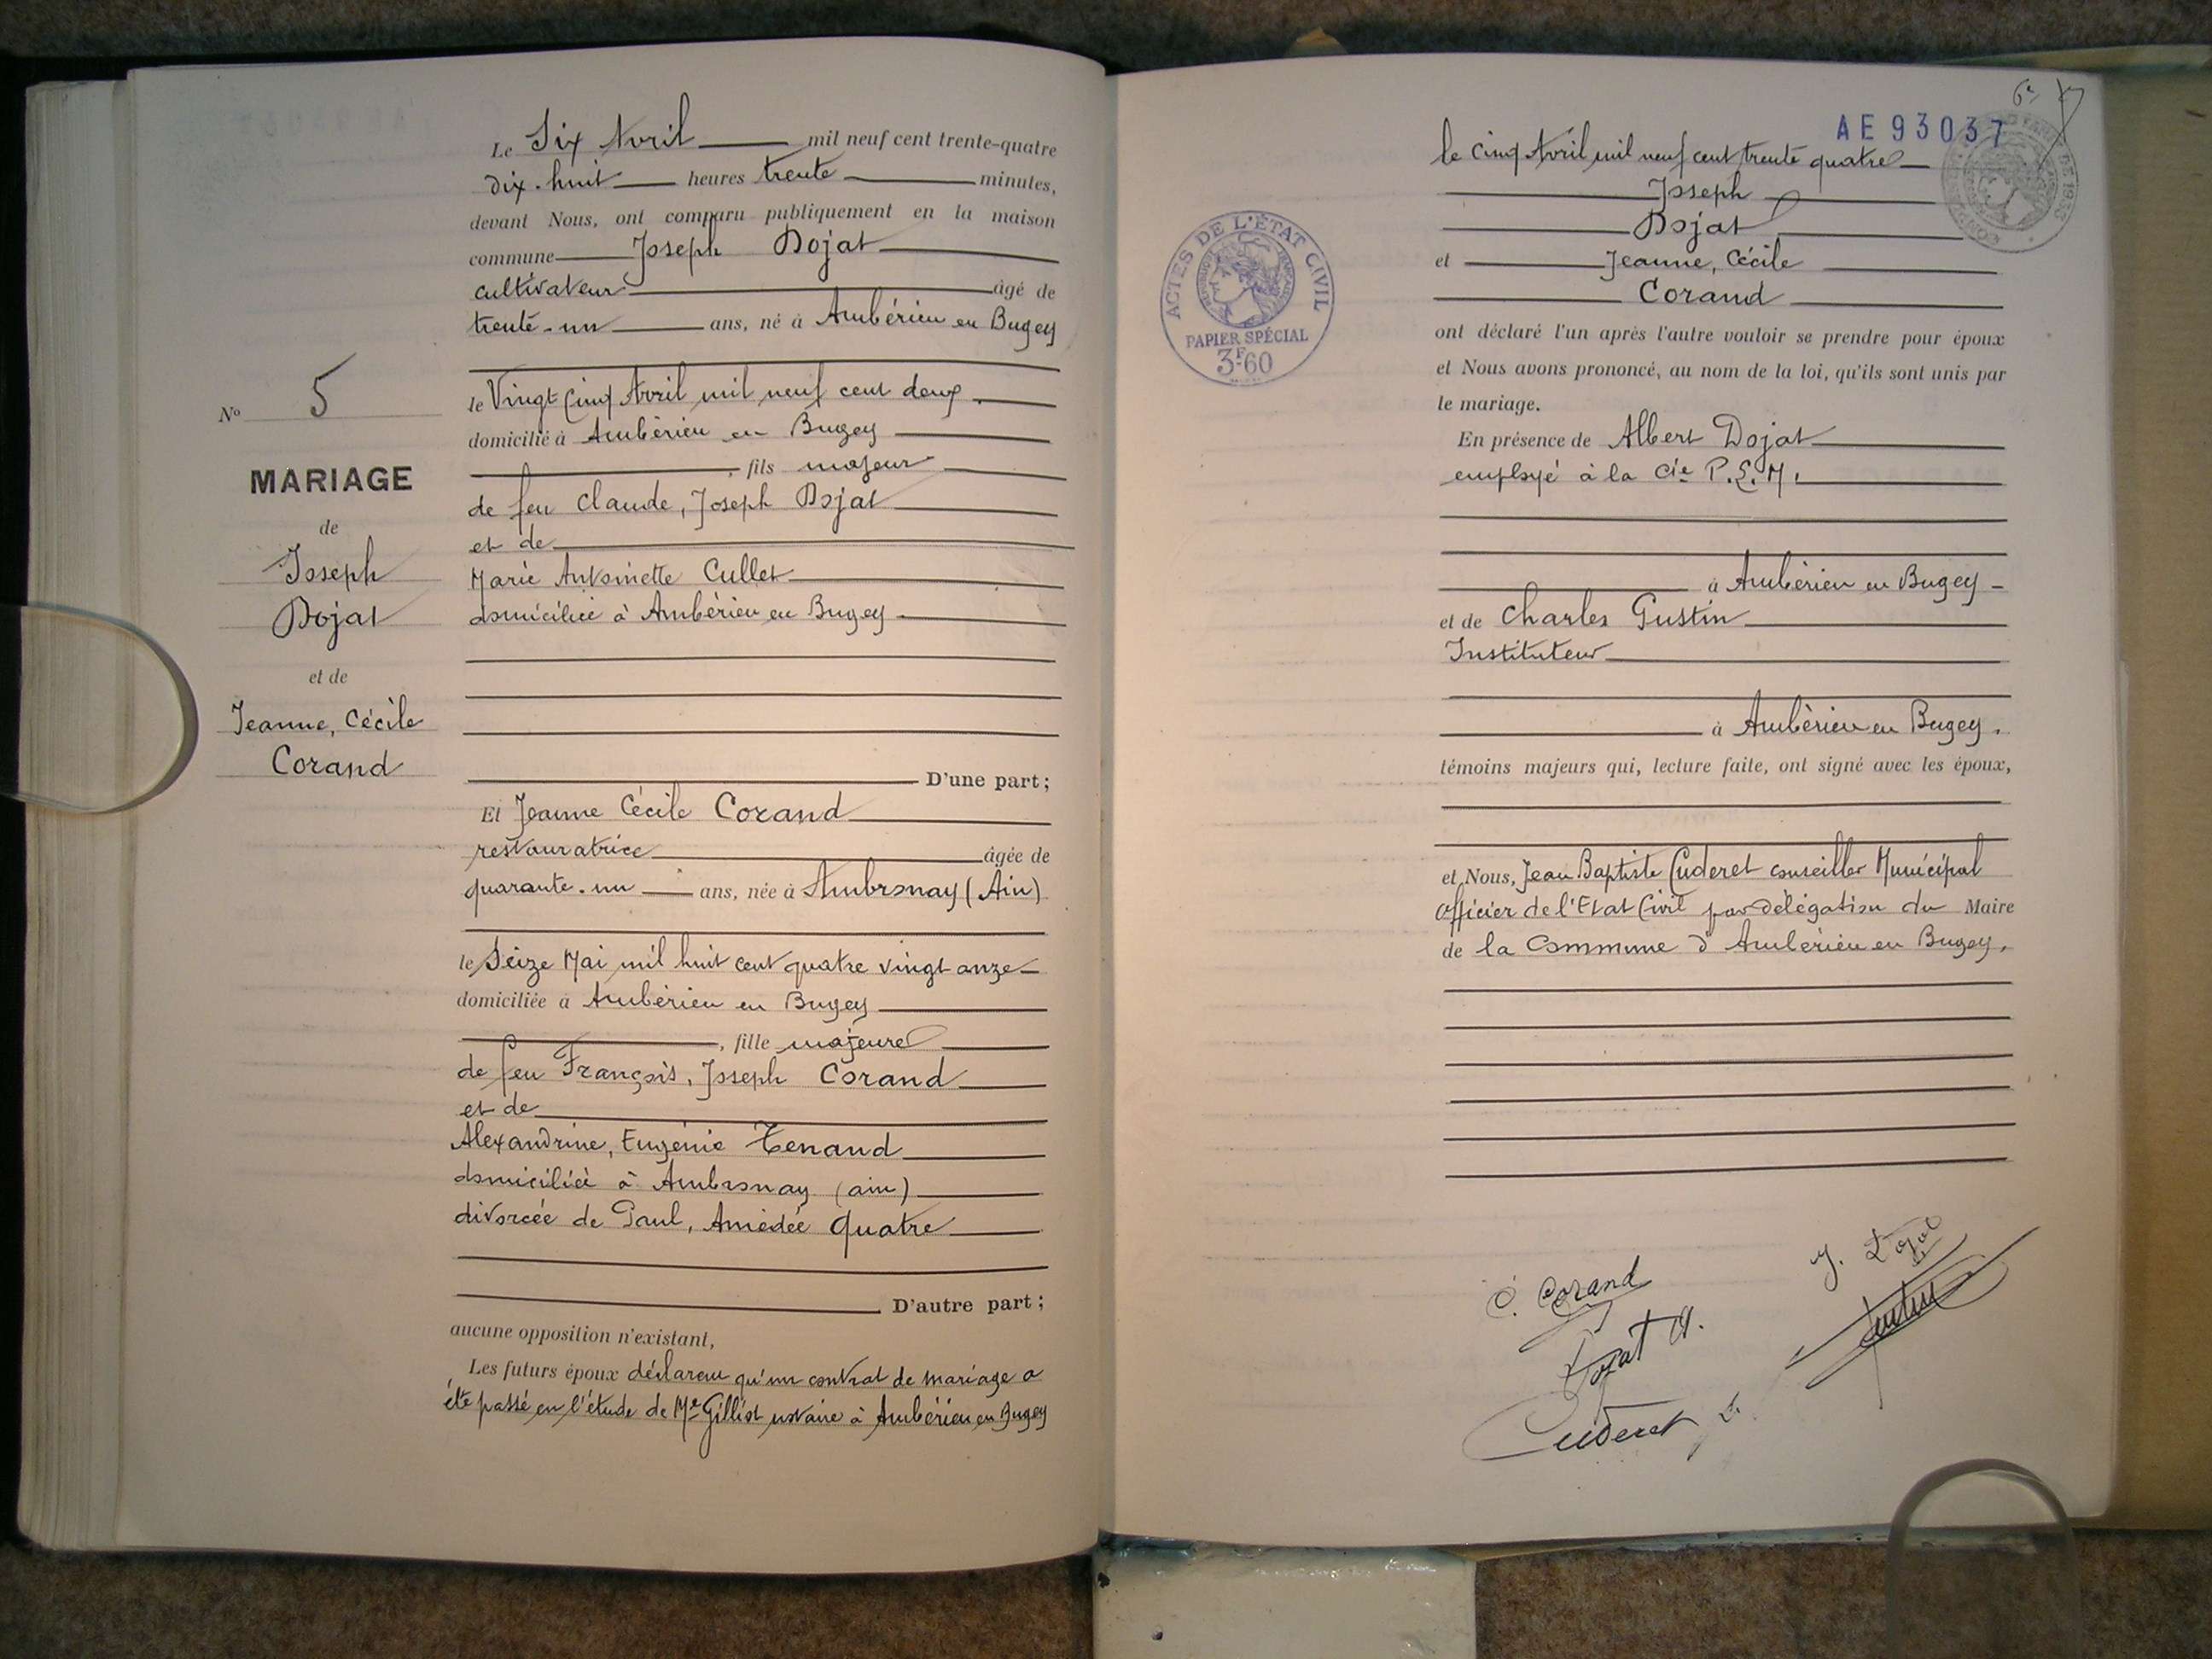 Le Six Avril mil neuf cent trente-quatre
dix-huit heures trente minutes,
devant Nous, ont comparu publiquement en la maison
commune Joseph Dojat
cultivateur âgé de
trente-un ans, né à Ambérieu en Bugey
le Vingt Cinq Avril mil neuf cent deux
domicilié à Ambérieu en Bugey
, fils majeur
de feu Claude, Joseph Dojat
et de
Marie Antoinette Cullet
domiciliée à Ambérieu en Bugey
D'une part;
Nº 5
MARIAGE
de
Joseph
Dojat
et de
Jeanne, Cécile
Corand
Et Jeanne Cécile Corand
restauratrice âgée de
quarante-un ans, née à Ambronay (Ain)
le Seize Mai mil huit cent quatre vingt onze
domiciliée à Ambérieu en Bugey
, fille majeure
de feu François, Joseph Corand
et de
Alexandrine, Eugénie Tenand
domiciliée à Ambronay (ain)
divorcée de Paul, Amédée Quatre
D'autre part;
aucune opposition n'existant,
Les futurs époux déclarent qu'un contrat de mariage a
été passé en l'étude de Me Gilliot notaire à Ambérieu en Bugey
AE 93037
le cinq Avril mil neuf cent trente quatre
Joseph
Dojat
et Jeanne, Cécile
Corand
ACTES DE L'ÉTAT CIVIL
PAPIER SPÉCIAL
3F60
ont déclaré l'un après l'autre vouloir se prendre pour époux
et Nous avons prononcé, au nom de la loi, qu'ils sont unis par
le mariage.
En présence de Albert Dojat
employé à la Cie P.L.M.
à Ambérieu en Bugey
et de Charles Gustin
Instituteur
à Ambérieu en Bugey.
témoins majeurs qui, lecture faite, ont signé avec les époux,
et Nous, Jean Baptiste Cuderet conseiller Municipal
officier de l'Etat Civil par délégation du Maire
de la Commune d'Ambérieu en Bugey.
C. Corand
J. Dojat
Dojat A.
Cuderet